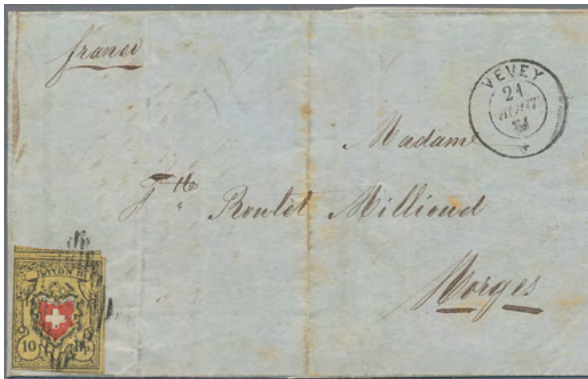 franco
VEVEY
21
AOUT
51
Madame
Roulet Millioud
Morges
RAYON II.
10 Rp.